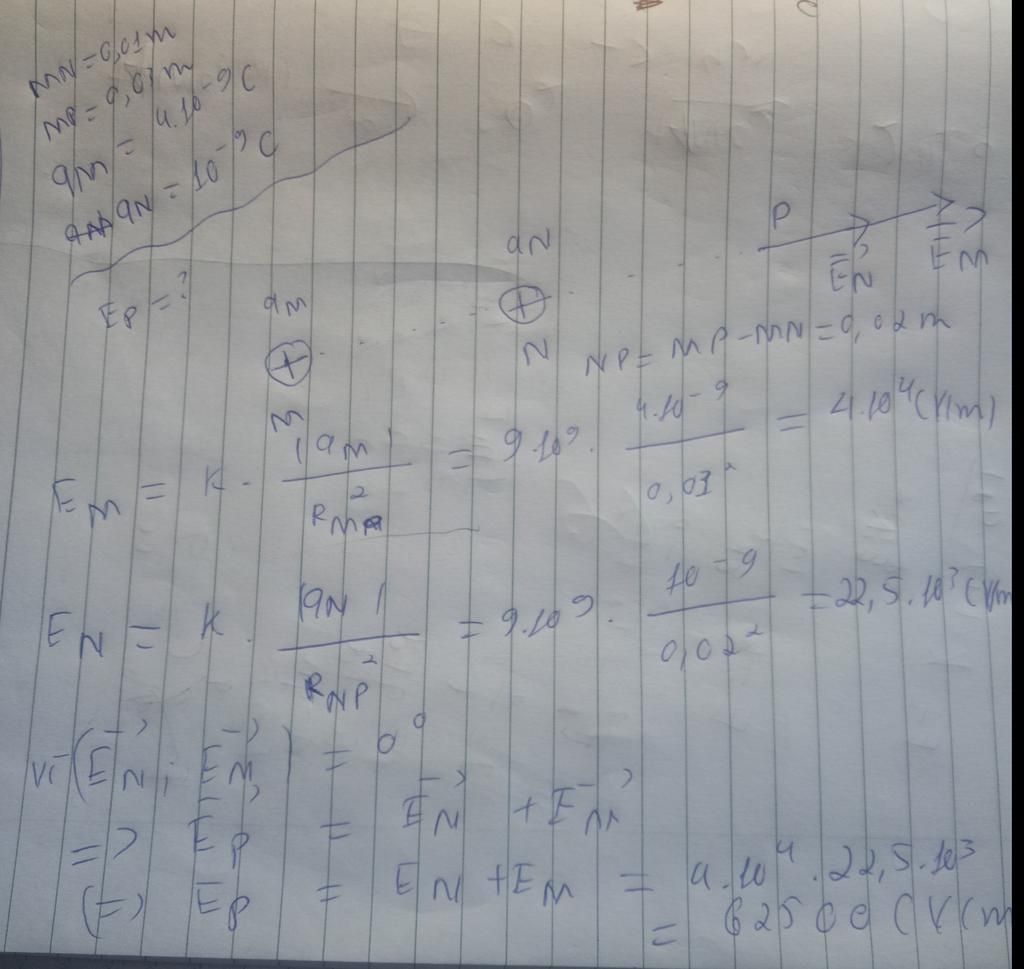 MN = 0,01 m
MP = 0,03 m
qM = 4.10⁻⁹ C
qN = 10⁻⁹ C
EP = ?
qM
qN
P
EN EM
M
N
NP = MP - MN = 0,02 m
EM = K . |qM| / RMP² = 9.10⁹ . 4.10⁻⁹ / 0,03² = 4.10⁴ (V/m)
EN = K . |qN| / RNP² = 9.10⁹ . 10⁻⁹ / 0,02² = 22,5.10³ (V/m
vì (EN ; EM) = 0⁰
=> EP = EN + EM
(=) EP = EN + EM = 4.10⁴ . 22,5.10³
= 62500 (V/m